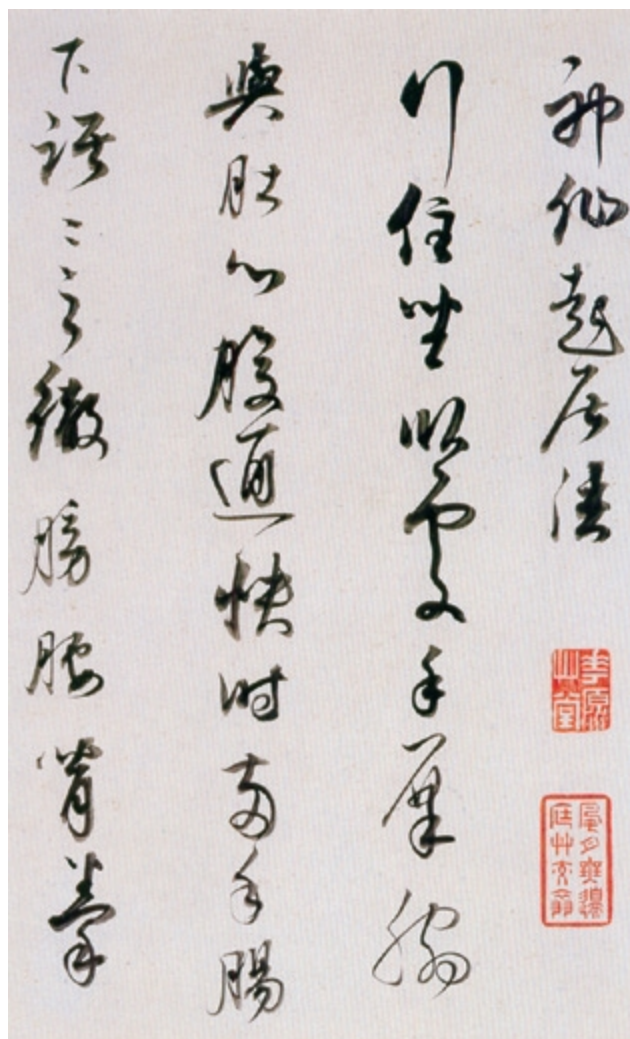 神仙起居法
行住坐卧處手摩脅
與肚心腹通快時兩手腸
下踞〻之徹膀腰背拳